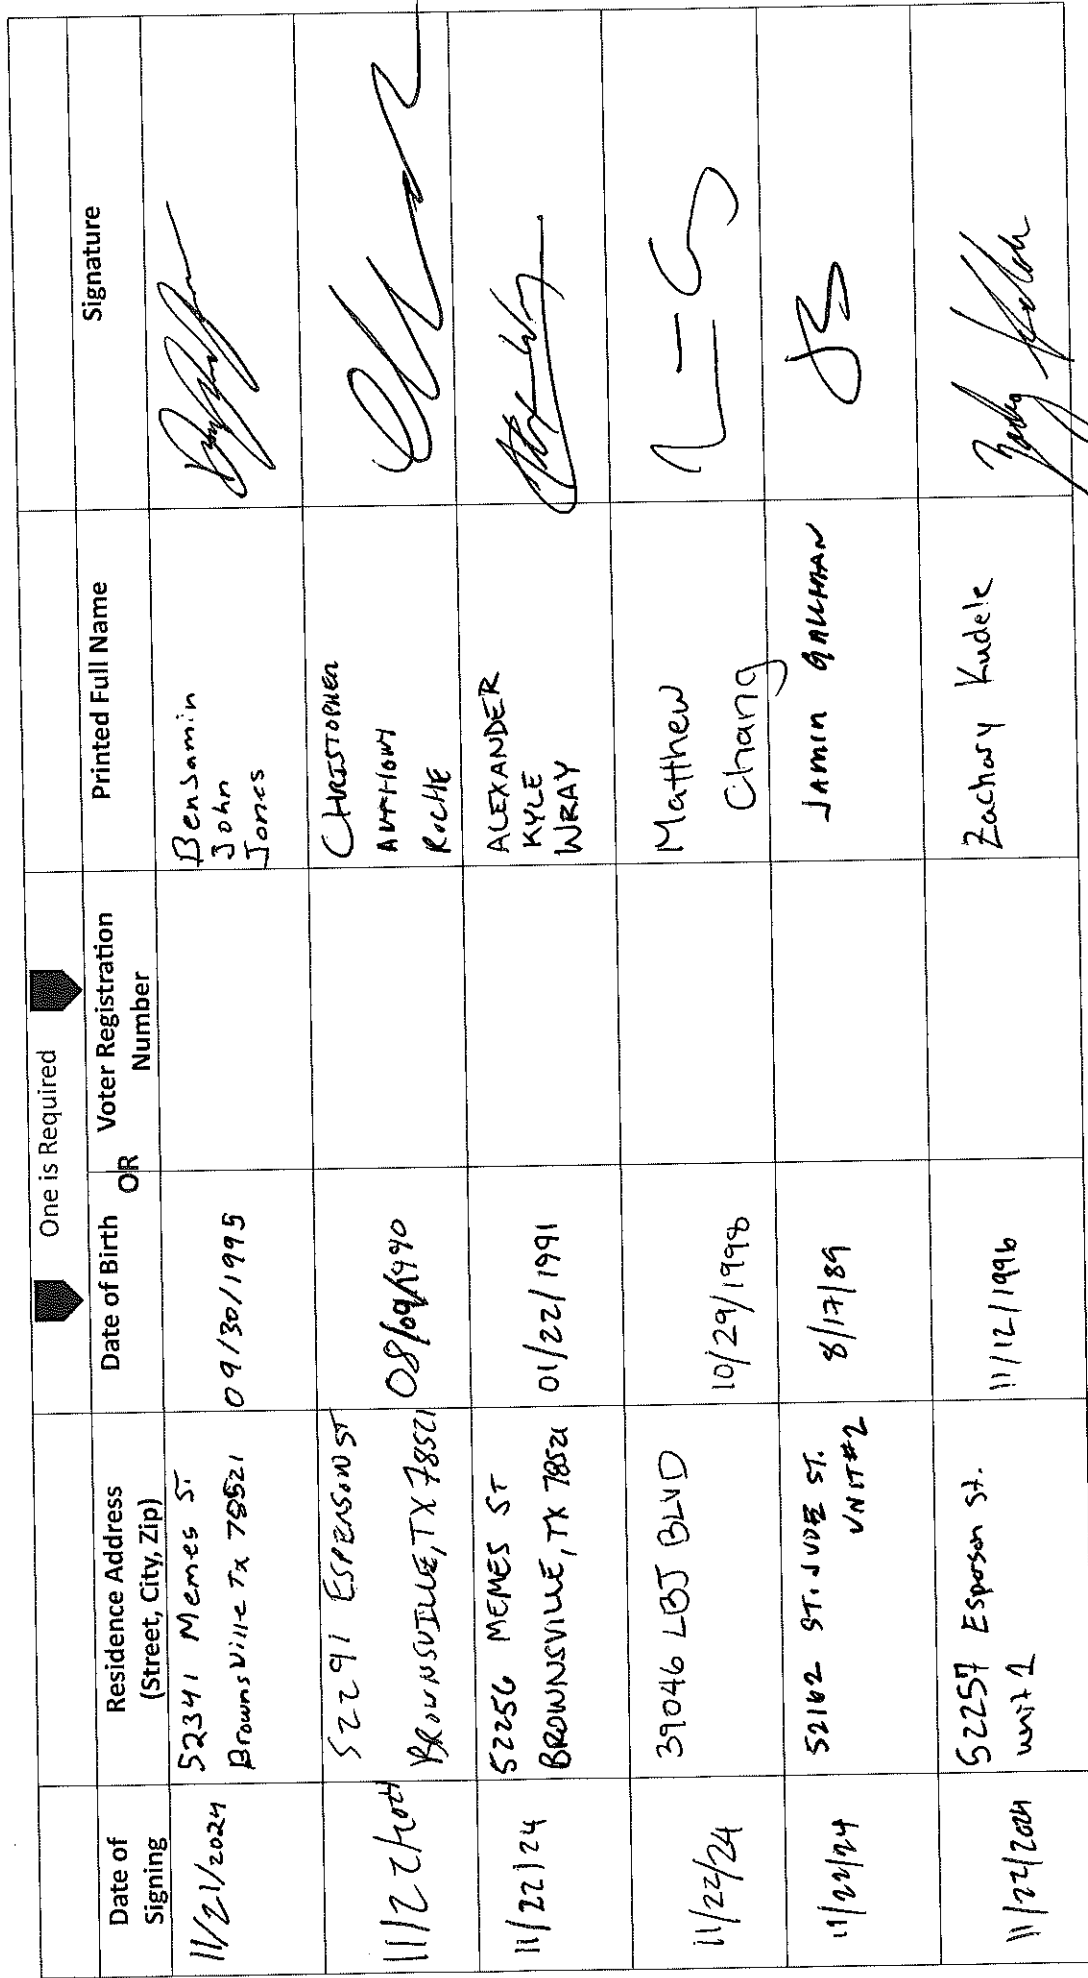 One is Required
Date of Signing
Residence Address (Street, City, Zip)
Date of Birth
OR
Voter Registration Number
Printed Full Name
Signature
11/21/2024
52341 Memes ST
Brownsville Tx 78521
09/30/1995
Benjamin
John
Jones
11/22/2024
52291 ESPERSON ST
BROWNSVILLE, TX 78521
08/09/1990
CHRISTOPHER
ANTHONY
ROCHE
11/22/24
52256 MEMES ST
BROWNSVILLE, TX 78521
01/22/1991
ALEXANDER
KYLE
WRAY
11/22/24
39046 LBJ BLVD
10/29/1998
Matthew
Chang
11/22/24
52162 ST. JUDE ST.
UNIT #2
8/17/89
JAMIN GALLMAN
11/22/2024
52257 Esporson St.
unit 1
11/12/1996
Zachary Kudele